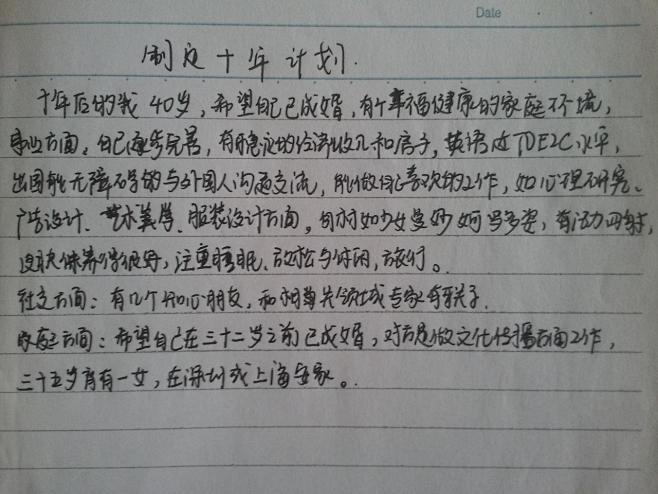 Date
制定十年计划.
十年后的我40岁，希望自己已成婚，有个幸福健康的家庭环境，
事业方面。自己逐步完善，有稳定的经济收入和房子，英语达TOEIC水平，
出国能无障碍的与外国人沟通交流，能做自己喜欢的工作，如心理研究、
广告设计、艺术美学、服装设计方面。身材如少女曼妙婀多姿，有活力四射，
皮肤保养得很好，注重睡眠、放松与休闲，旅行。
社交方面：有几个知心朋友，和相关领域专家有关子.
家庭方面：希望自己在三十二岁之前已成婚，对方是做文化传播方面工作，
三十五岁育有一女，在深圳或上海安家。